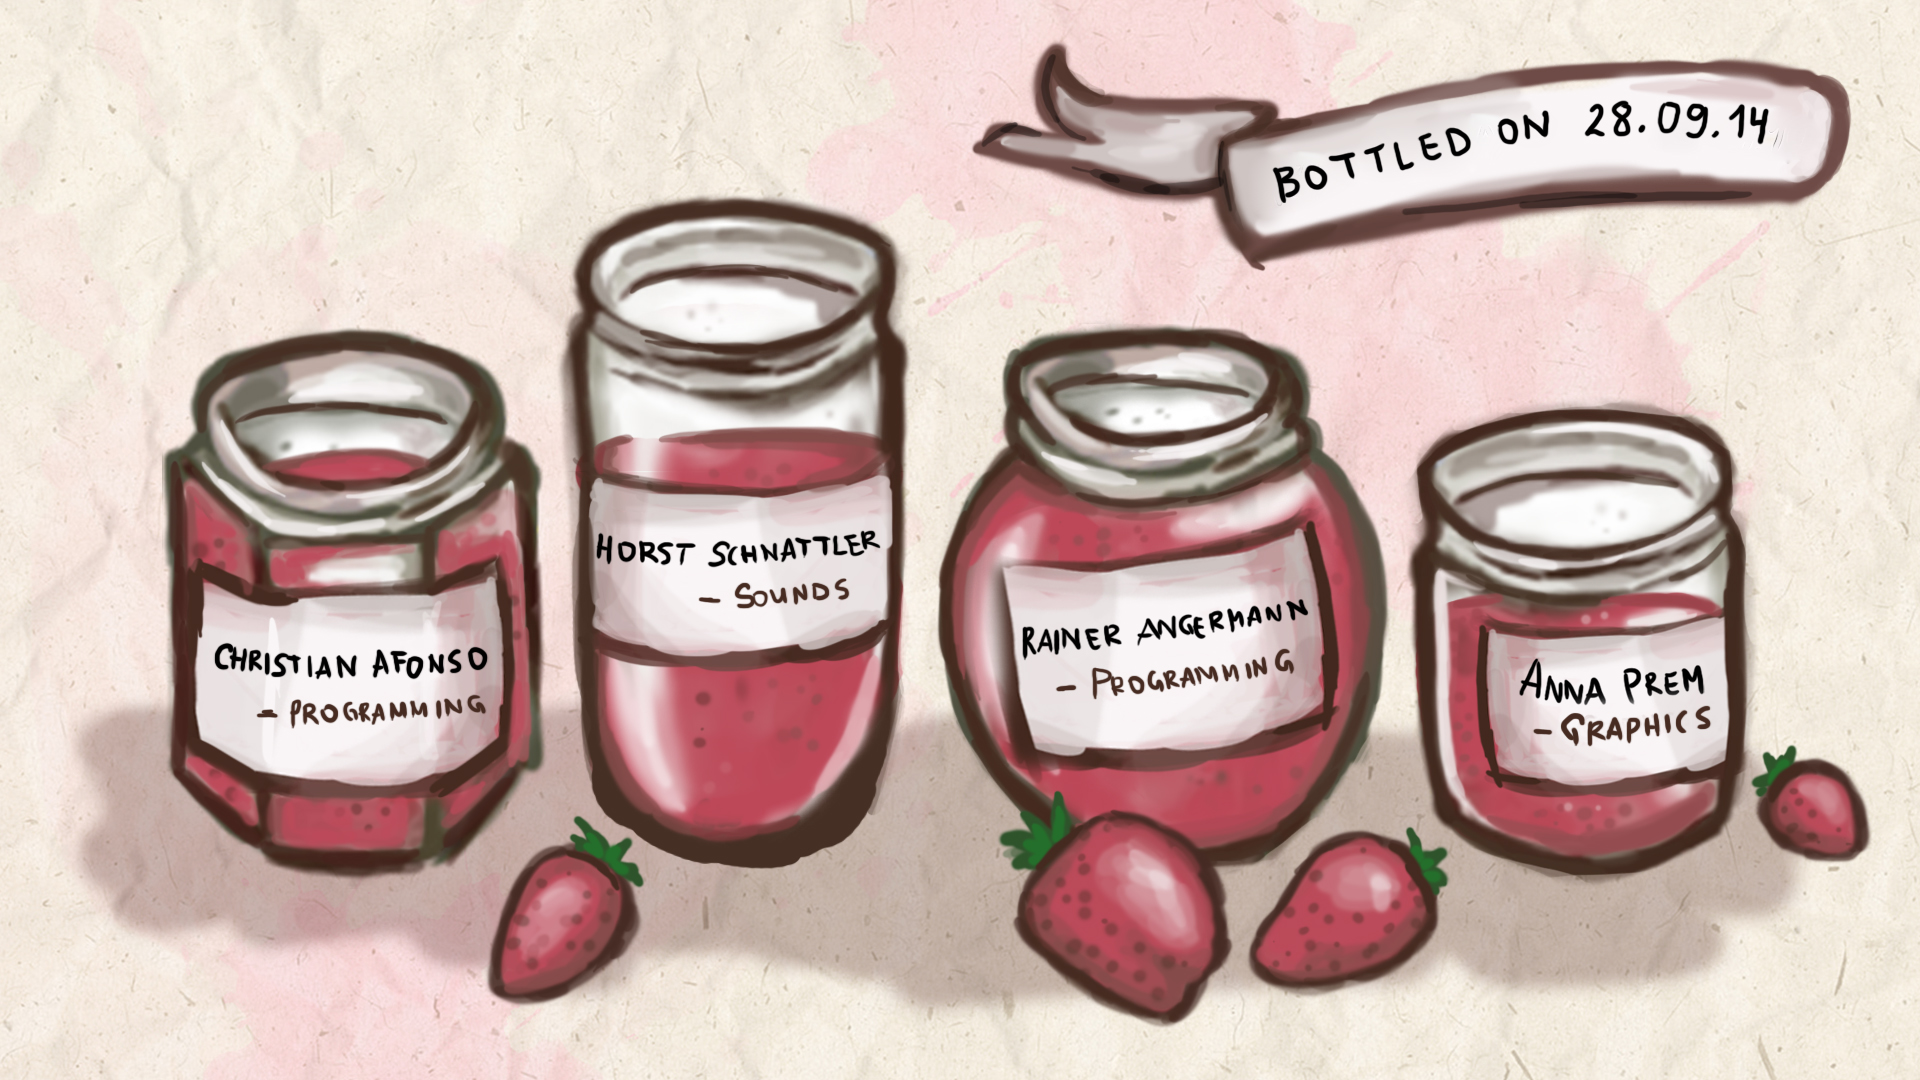 BOTTLED ON 28.09.14
CHRISTIAN AFONSO
- PROGRAMMING
HORST SCHNATTLER
- SOUNDS
RAINER ANGERMANN
- PROGRAMMING
ANNA PREM
- GRAPHICS